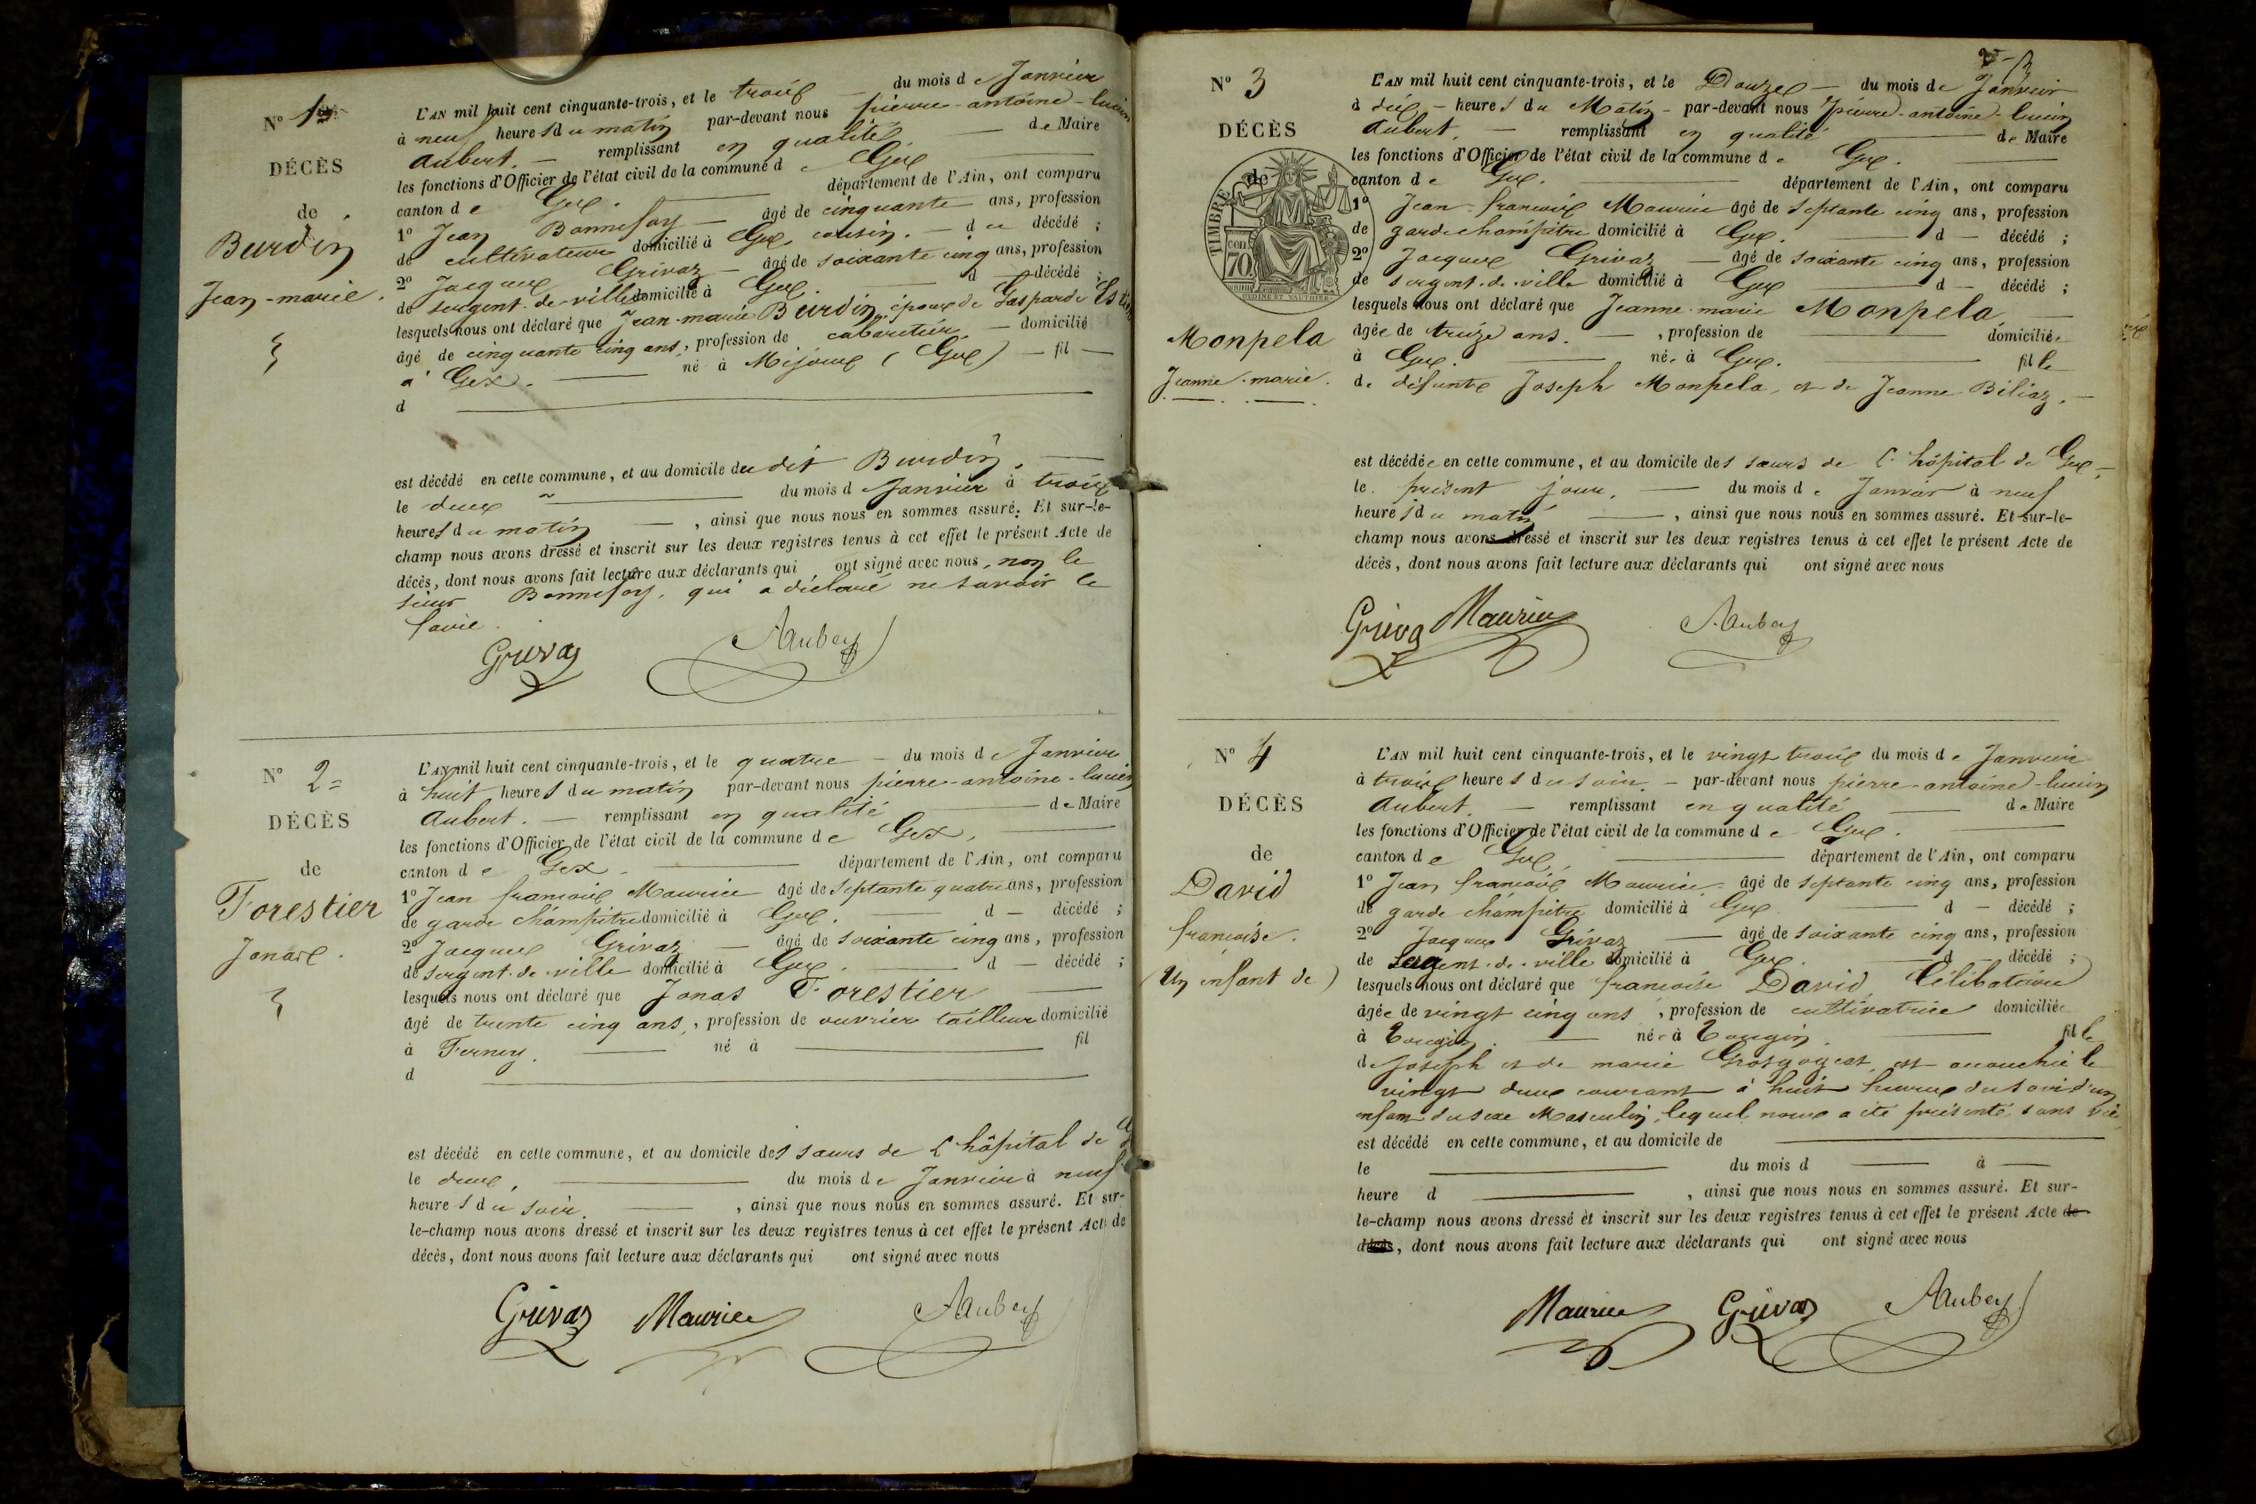 N° 1er
DÉCÈS
de
Burdin
Jean-marie.
L'AN mil huit cent cinquante-trois, et le trois du mois de Janvier
à neuf heures du matin par-devant nous pierre-antoine-lucien
Aubert. remplissant en qualité de Maire
les fonctions d'Officier de l'état civil de la commune de Gex
canton de Gex. département de l'Ain, ont comparu
1° Jean Bonnefoy âgé de cinquante ans, profession
de cultivateur domicilié à Gex, cousin. du décédé ;
2° Jacques Grivaz âgé de soixante cinq ans, profession
de sergent-de-ville domicilié à Gex. d décédé ;
lesquels nous ont déclaré que Jean-marie Burdin, époux de Gasparde
âgé de cinquante cinq ans, profession de cabaretier domicilié
à Gex. né à Mijoux (Gex) fil
d
est décédé en cette commune, et au domicile du dit Burdin,
le deux du mois de Janvier à trois
heures du matin, ainsi que nous nous en sommes assuré. Et sur-le-
champ nous avons dressé et inscrit sur les deux registres tenus à cet effet le présent Acte de
décès, dont nous avons fait lecture aux déclarants qui ont signé avec nous, non le
sieur Bonnefoy, qui a déclaré ne savoir le
faire.
Grivaz Aubert
N° 2
DÉCÈS
de
Forestier
Jonas.
L'AN mil huit cent cinquante-trois, et le quatre du mois de Janvier
à huit heures du matin par-devant nous pierre-antoine-lucien
Aubert. remplissant en qualité de Maire
les fonctions d'Officier de l'état civil de la commune de Gex,
canton de Gex. département de l'Ain, ont comparu
1° Jean françois Maurice âgé de septante quatre ans, profession
de garde champêtre domicilié à Gex. d décédé ;
2° Jacques Grivaz âgé de soixante cinq ans, profession
de sergent-de-ville domicilié à Gex. d décédé ;
lesquels nous ont déclaré que Jonas Forestier
âgé de trente cinq ans, profession de ouvrier tailleur domicilié
à Ferney. né à fil
d
est décédé en cette commune, et au domicile des sœurs de l'hôpital de
le deux, du mois de Janvier à neuf
heures du soir, ainsi que nous nous en sommes assuré. Et sur-
le-champ nous avons dressé et inscrit sur les deux registres tenus à cet effet le présent Acte de
décès, dont nous avons fait lecture aux déclarants qui ont signé avec nous
Grivaz Maurice Aubert
N° 3
DÉCÈS
de
TIMBRE
Monpela
Jeanne-marie.
L'AN mil huit cent cinquante-trois, et le Douze du mois de Janvier
à dix heures du Matin par-devant nous pierre-antoine-lucien
Aubert, remplissant en qualité de Maire
les fonctions d'Officier de l'état civil de la commune de Gex.
canton de Gex. département de l'Ain, ont comparu
1° Jean-françois Maurice âgé de septante cinq ans, profession
de garde champêtre domicilié à Gex. d décédé ;
2° Jacques Grivaz âgé de soixante cinq ans, profession
de sergent-de-ville domicilié à Gex d décédé ;
lesquels nous ont déclaré que Jeanne-marie Monpela
âgée de treize ans. , profession de domiciliée
à Gex. née à Gex. fille
de défunts Joseph Monpela, et de Jeanne Béliaz.
est décédée en cette commune, et au domicile des sœurs de l'hôpital de Gex,
le présent jour, du mois de Janvier à neuf
heures du matin, ainsi que nous nous en sommes assuré. Et sur-le-
champ nous avons dressé et inscrit sur les deux registres tenus à cet effet le présent Acte de
décès, dont nous avons fait lecture aux déclarants qui ont signé avec nous
Grivaz Maurice Aubert
N° 4
DÉCÈS
de
David
françoise.
(Un enfant de)
L'AN mil huit cent cinquante-trois, et le vingt trois du mois de Janvier
à trois heures du soir. par-devant nous pierre-antoine-lucien
Aubert. remplissant en qualité de Maire
les fonctions d'Officier de l'état civil de la commune de Gex.
canton de Gex, département de l'Ain, ont comparu
1° Jean françois Maurice âgé de septante cinq ans, profession
de garde champêtre domicilié à Gex d décédé ;
2° Jacques Grivaz âgé de soixante cinq ans, profession
de sergent-de-ville domicilié à Gex. d décédé ;
lesquels nous ont déclaré que françoise David Célibataire
âgée de vingt cinq ans, profession de cultivatrice domiciliée
à Tougin. née à Tougin. fille
de Joseph et de marie Grosgogeat, est accouchée le
vingt deux courant à huit heures du soir d'un
enfant du sexe Masculin, lequel nous a été présenté sans vie.
est décédé en cette commune, et au domicile de
le du mois d à
heure d , ainsi que nous nous en sommes assuré. Et sur-
le-champ nous avons dressé et inscrit sur les deux registres tenus à cet effet le présent Acte de
décès, dont nous avons fait lecture aux déclarants qui ont signé avec nous
Maurice Grivaz Aubert